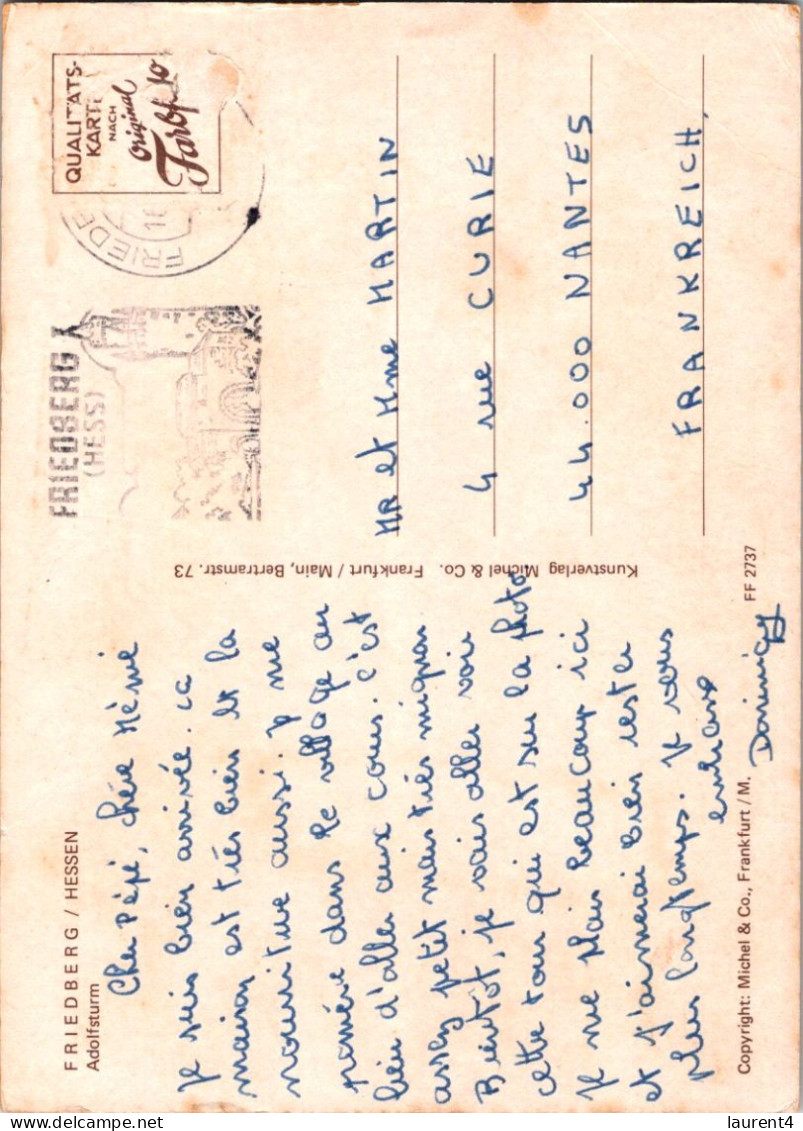 FRIEDBERG / HESSEN
Adolfsturm
Cher Pépé, chère Mémé
Je suis bien arrivée. La
maison est très bien et la
nourriture aussi. Je me
promène dans le village au
lieu d'aller aux cours. C'est
assez petit mais très mignon
Bientôt, je vais aller voir
cette tour qui est sur la photo.
Je me plais beaucoup ici
et j'aimerai bien rester
plus longtemps. Je vous
embrasse
Dominique
Copyright: Michel & Co., Frankfurt/M.
FF 2737
Kunstverlag Michel & Co. Frankfurt / Main, Bertramstr. 73
FRIEDBERG
(HESS)
FRIEDB
QUALITÄTS-
KARTE
NACH
Original
MR et Mme MARTIN
4 rue CURIE
44.000 NANTES
FRANKREICH,
laurent4
delcampe.net